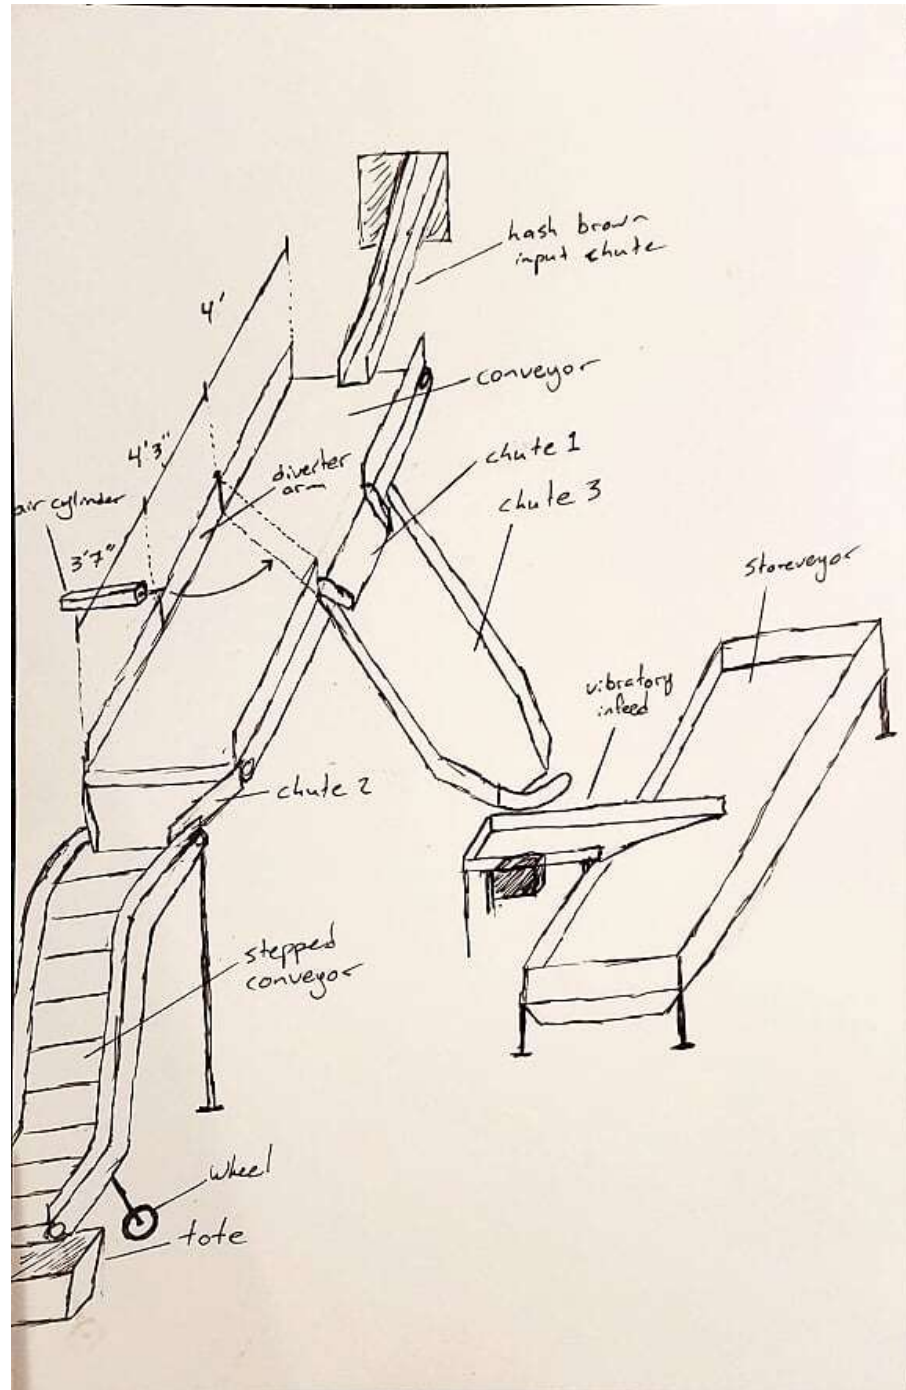 hash brown
input chute
4'
conveyor
4'3"
diverter
arm
chute 1
air cylinder
chute 3
3'7"
storeveyor
vibratory
infeed
chute 2
stepped
conveyor
wheel
tote